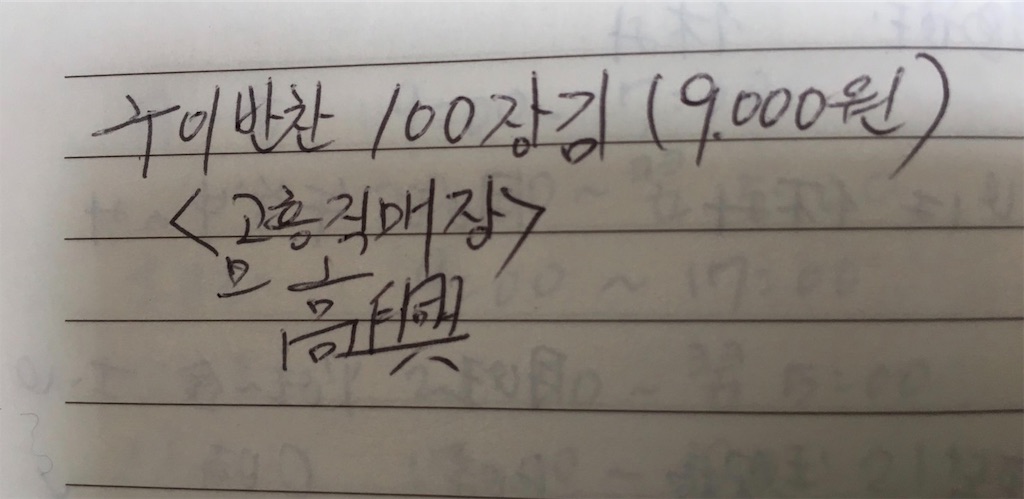 구이반찬 100장김 (9.000원)
<고흥직매장>
高興